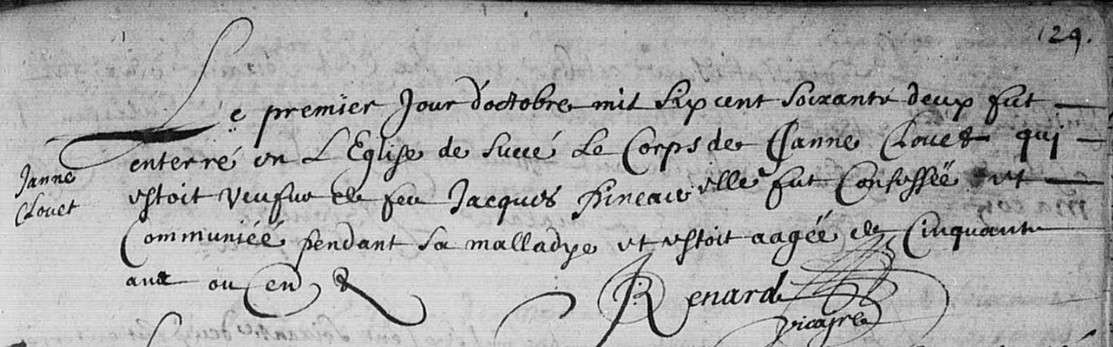 129.
Le premier Jour d'octobre mil six cent soixante deux fut
enterré en L'Eglise de Succé Le Corps de Janne Clouet qui
Janne
Clouet
estoit veufue de feu Jacques Pineau elle fut Confessée et
Communiée pendant sa malladye et estoit aagée de Cinquante
ans ou en &
Renard
vicayre